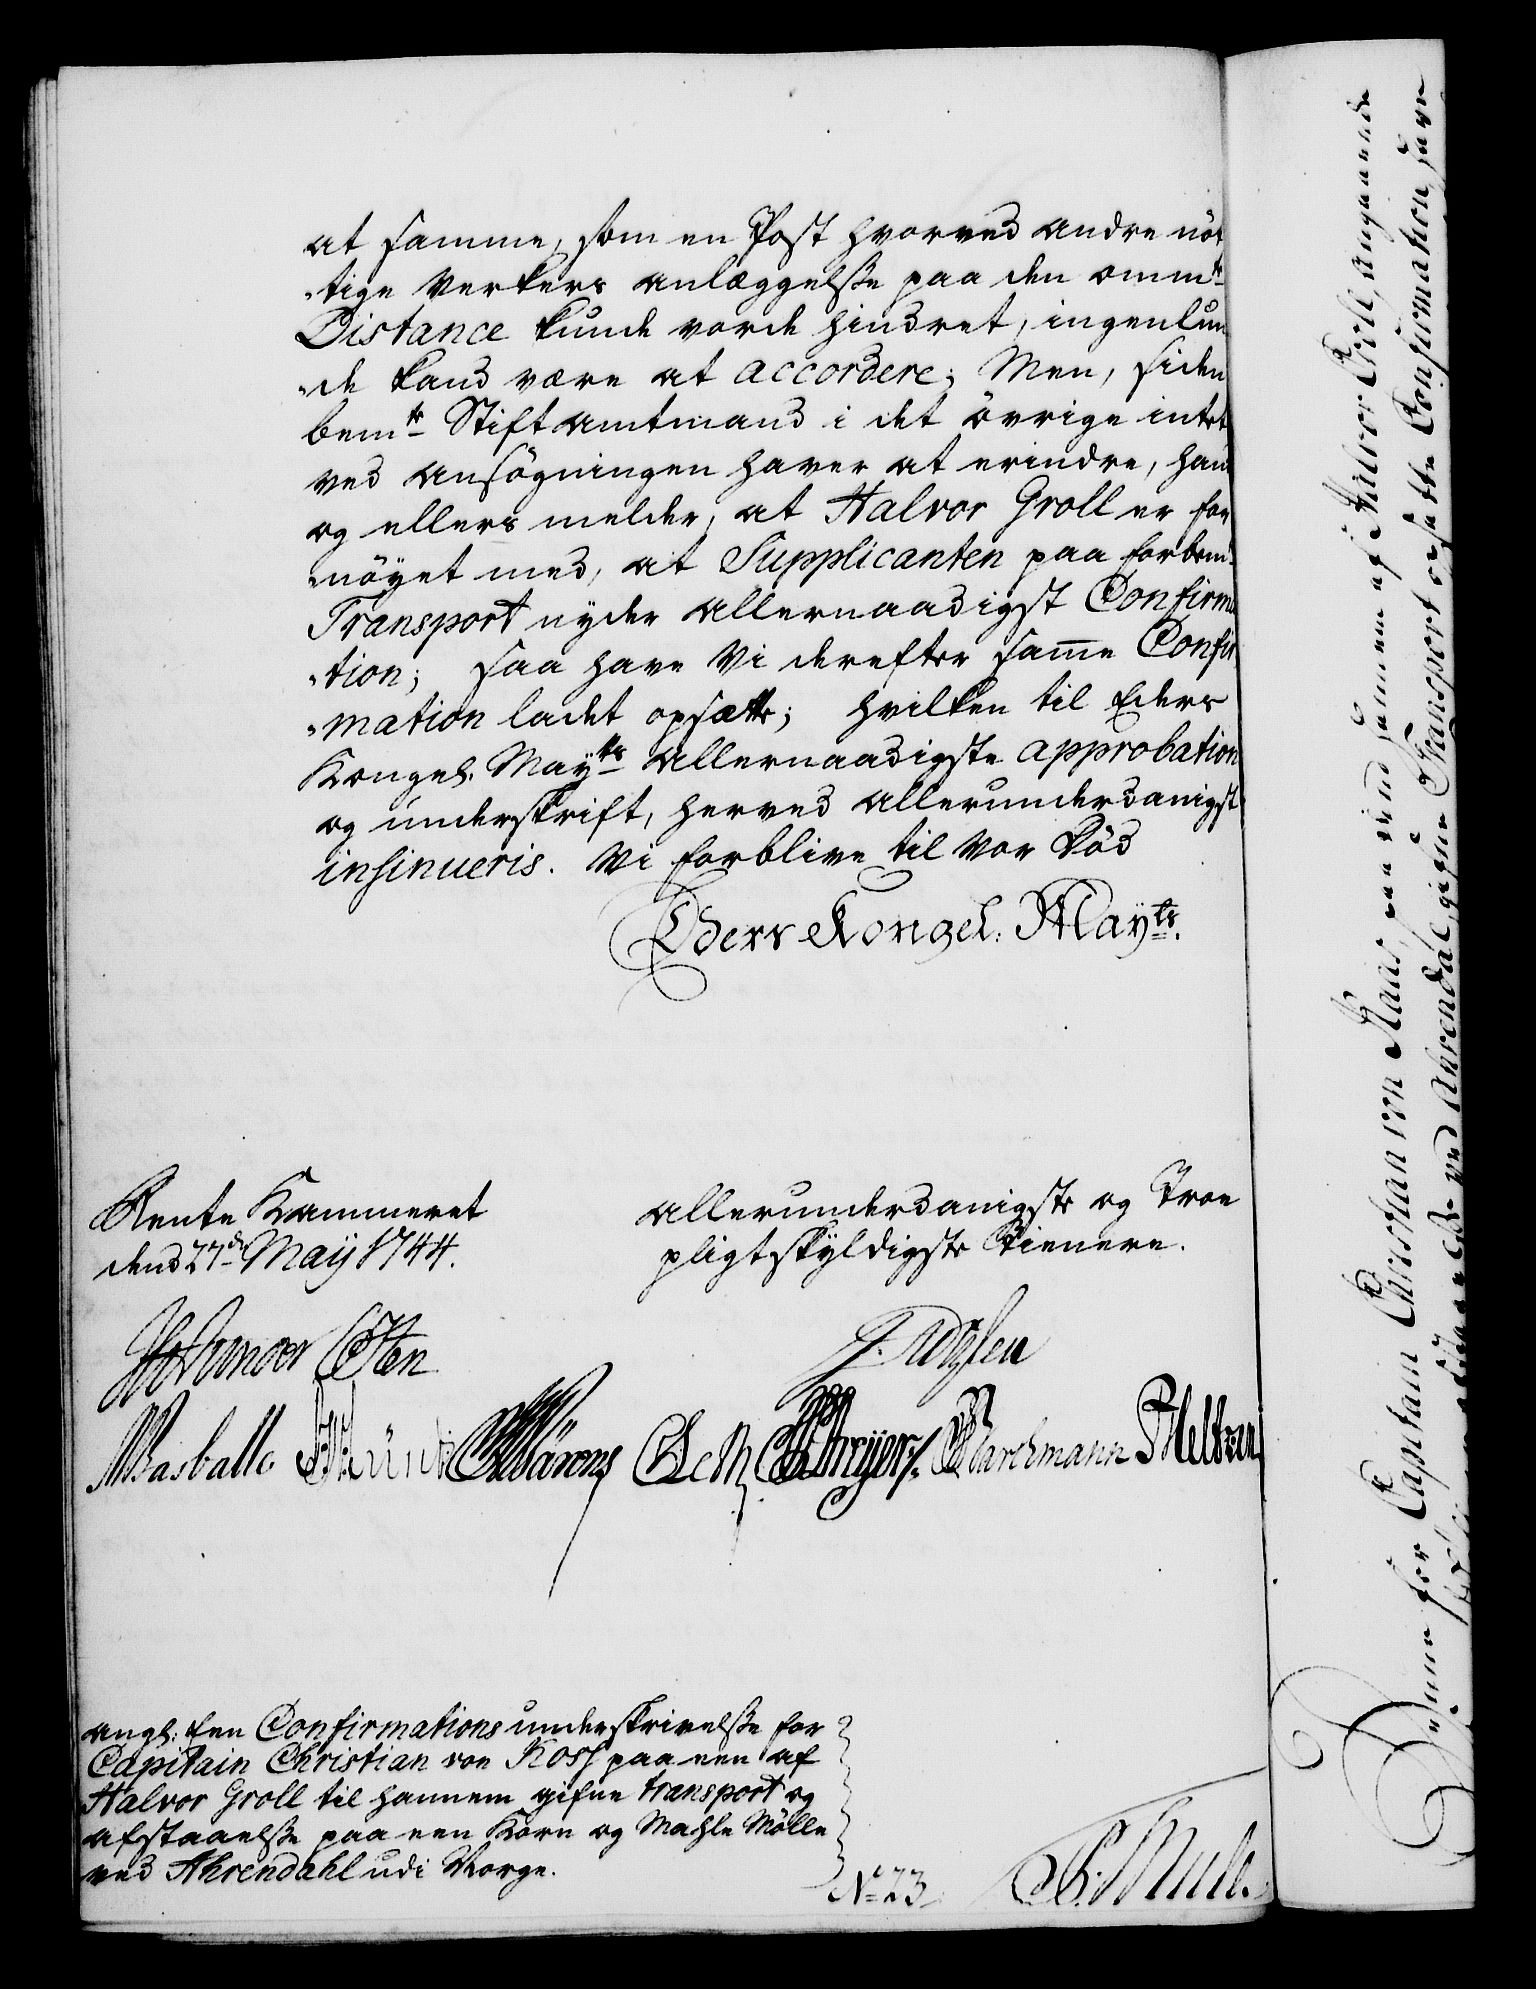 at samme, som en Post hvorved andre nöt
-tige Verkers anlæggelsße paa den ommte
Distance kunde vorde hindret, ingenlun
-de kand være at accordere; Men, siden
bemte Stiftamtmand i det övrige intet
ved ansögningen haver at erindre, hand
og ellers melder, at Halvor Groll er for
nöyet med, at Supplicanten paa forbemte
Transport nyder allernaadigst Confirma
-tion; saa have Vi derefter samme Confir
-mation ladet opsætte; hvilken til Eders
Kongel. Mayts allernaadigste approbation
og underskrift, herved allerunderdanigst
insinueris. Vi forblive til vor död
Eders Kongel: Mayts.
Rente Kammeret
dend 27de May 1744.
allerunderdanigste og Troe
pligtskyldigste Tienere.
Wasballe
Barchmann Meltzen
angl: een Confirmations underskrivelsße for
Capitain Christian von Koss paa een af
Halvor Groll til hannem gifne transport og
afstaaelsße paa een Korn og Mahle Mölle
ved Ahrendahl udi Norge.
No 23.
for Capitain Christian von Kaas, paa eend hannem af Halvor Groll, angaaende
ved Ahrendal, gifne Transport ofsatte Confirmation, have